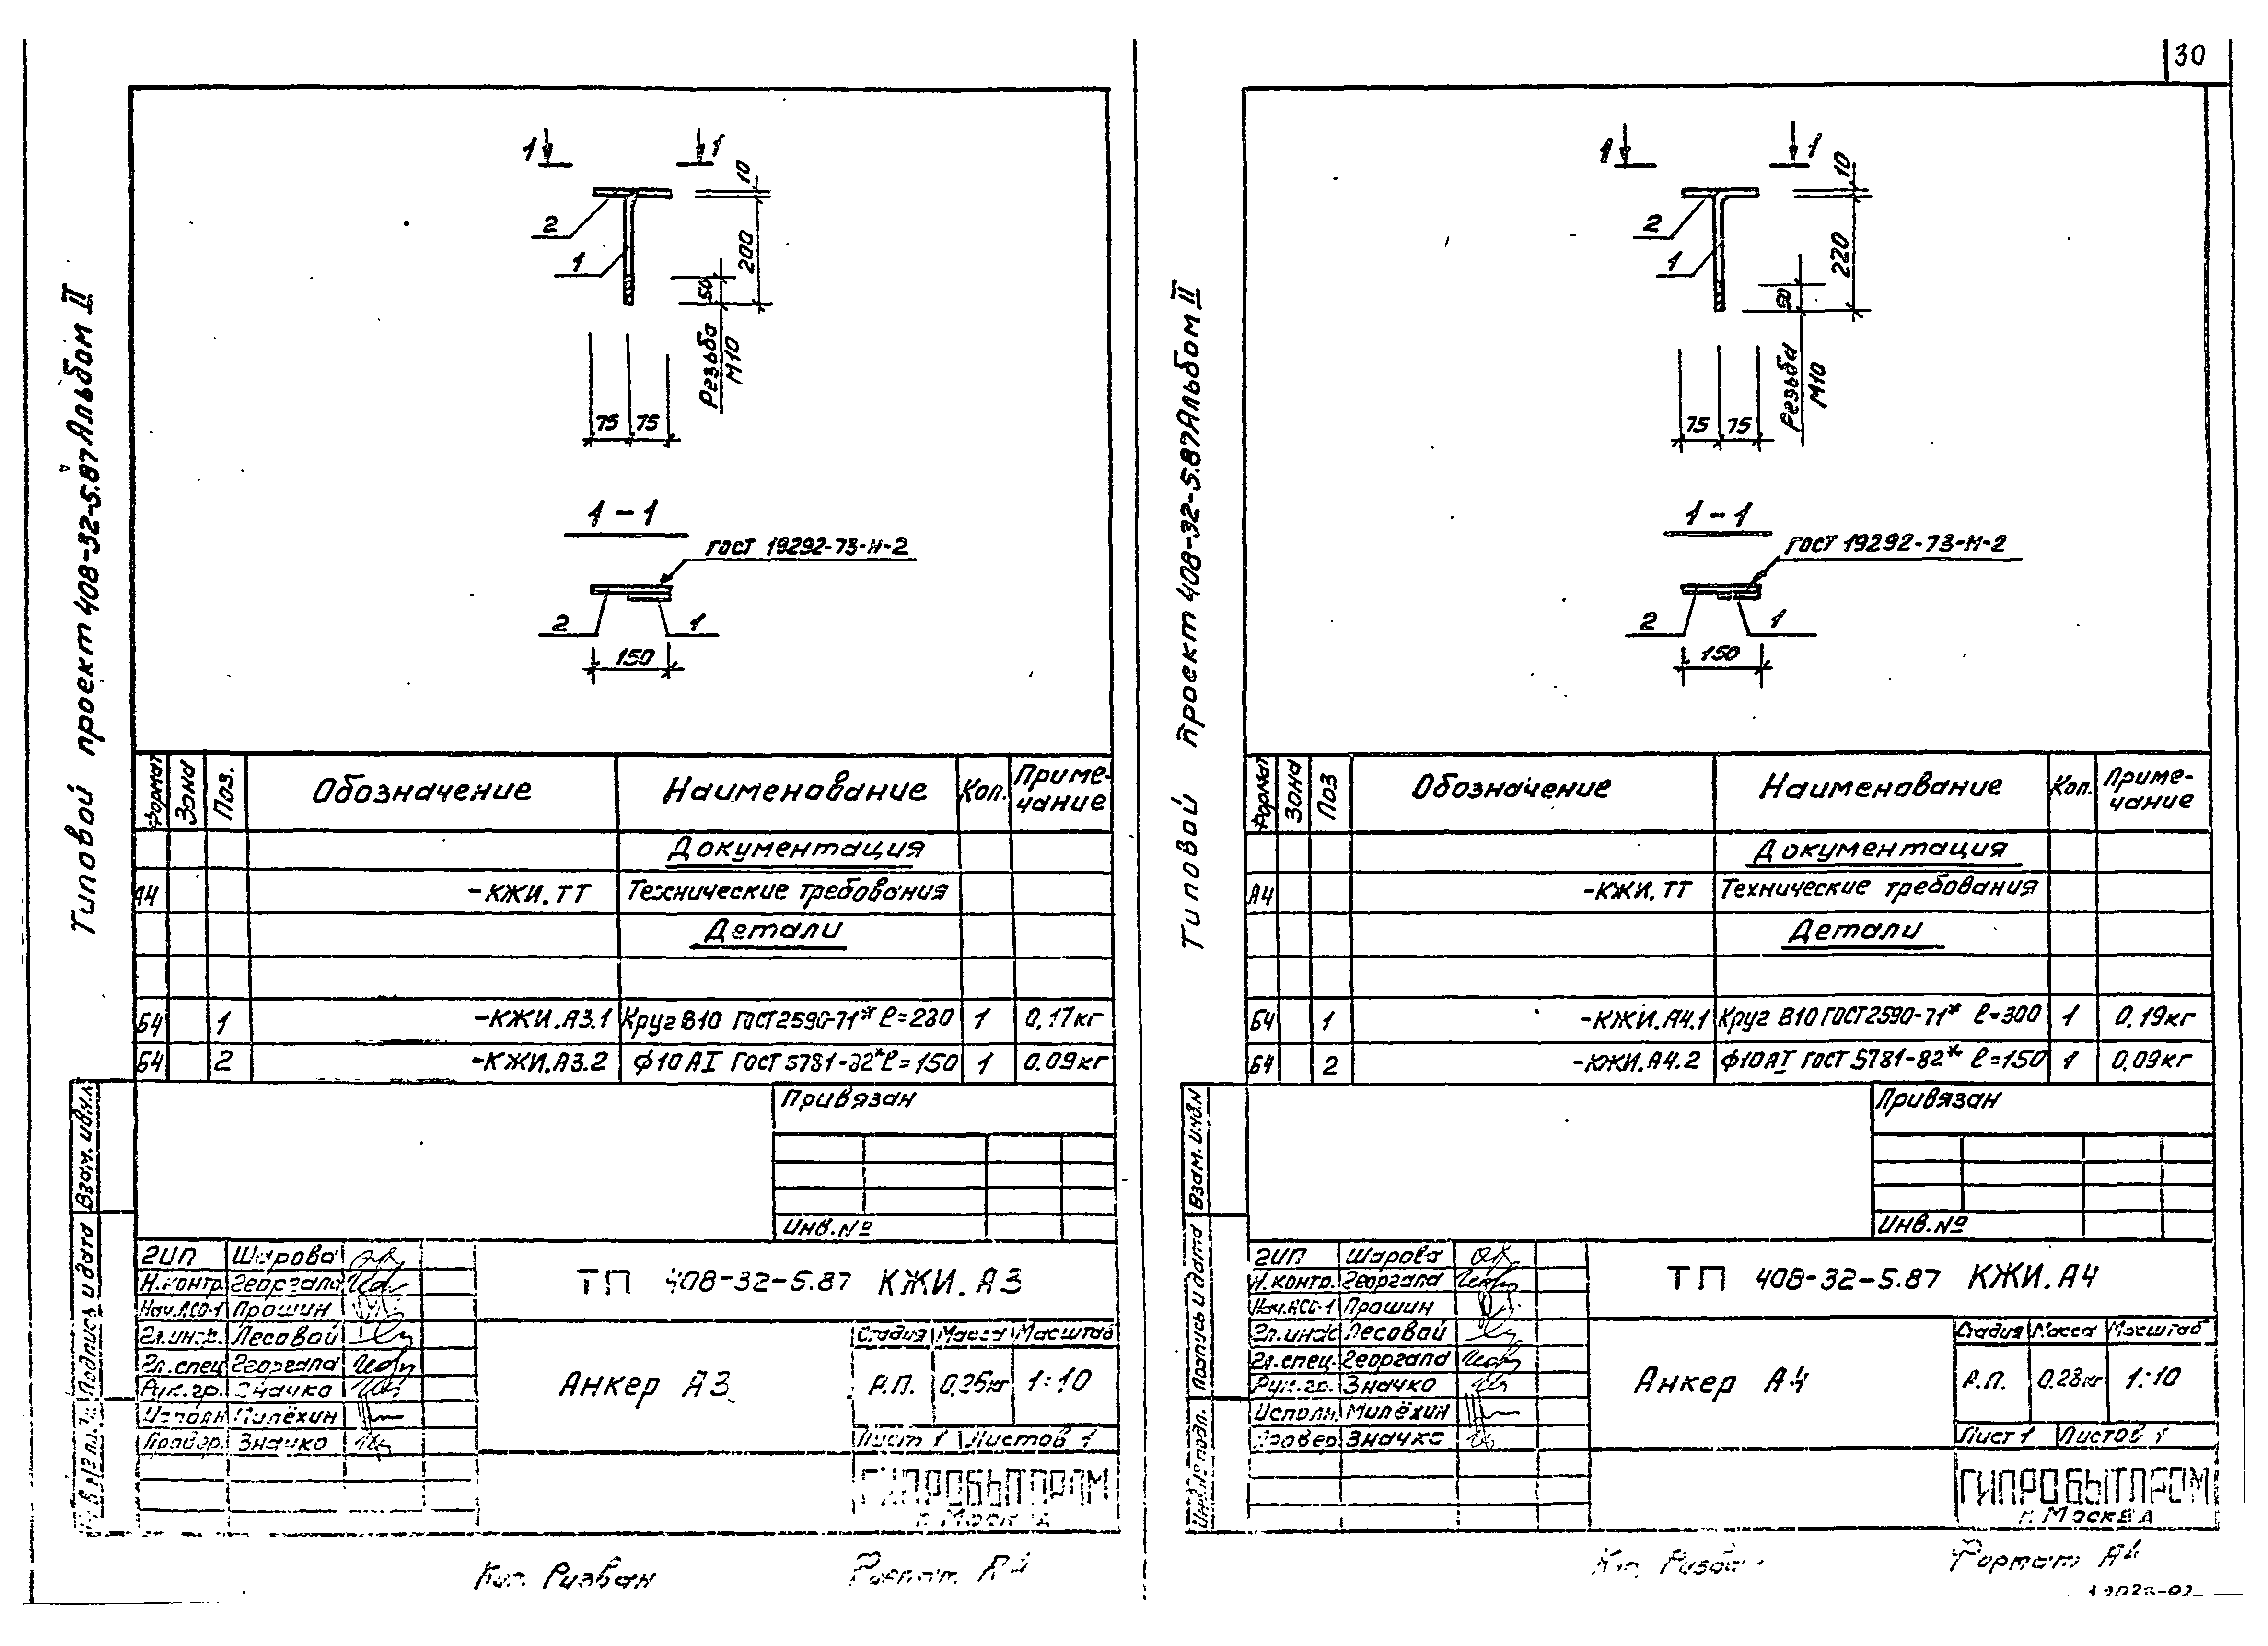 30
Типовой проект 408-32-5.87 Альбом II
1 1
10
2
1
200
50
Резьба М10
75 75
1-1
ГОСТ 19292-73-Н-2
2 1
150
Формат Зона Поз. Обозначение Наименование Кол. Приме-чание
Документация
А4 -КЖИ.ТТ Технические требования
Детали
Б4 1 -КЖИ.А3.1 Круг В10 ГОСТ 2590-71* ℓ=280 1 0,17кг
Б4 2 -КЖИ.А3.2 ф10 АI ГОСТ 5781-82* ℓ=150 1 0.09кг
Привязан
Инв.№
Взам. инв.н.
Подпись и дата
ГИП Шарова
Н.контр. Георгала
Нач.АСО-1 Прошин
Гл.инж. Лесовой
Гл.спец Георгала
Рук.гр. Значко
Исполн Милёхин
Провер. Значко
ТП 408-32-5.87 КЖИ.А3
Анкер А3
Стадия Масса Масштаб
Р.П. 0,26кг 1:10
Лист 1 Листов 1
ГИПРОБЫТПРОМ
г. Москва
Кол. Ризван
Формат А4
Типовой проект 408-32-5.87 Альбом II
1 1
10
2
1
220
50
Резьба М10
75 75
1-1
ГОСТ 19292-73-Н-2
2 1
150
Формат Зона Поз Обозначение Наименование Кол. Приме-чание
Документация
А4 -КЖИ.ТТ Технические требования
Детали
Б4 1 -КЖИ.А4.1 Круг В10 ГОСТ 2590-71* ℓ=300 1 0,19кг
Б4 2 -КЖИ.А4.2 ф10 АI ГОСТ 5781-82* ℓ=150 1 0,09кг
Привязан
Инв.№
Взам. инв.N
Подпись и дата
Инв.№ подл.
ГИП Шарова
Н.контр. Георгала
Нач.АСО-1 Прошин
Гл.инж Лесовой
Гл.спец. Георгала
Рук.гр. Значко
Исполн. Милёхин
Провер Значко
ТП 408-32-5.87 КЖИ.А4
Анкер А4
Стадия Масса Масштаб
Р.П. 0.28кг 1:10
Лист 1 Листов 1
ГИПРОБЫТПРОМ
г. Москва
Формат А4